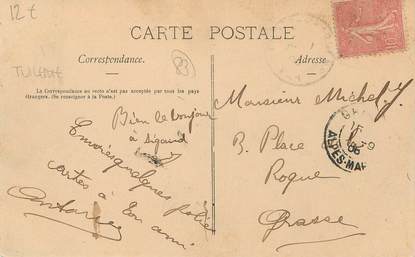 12€
CARTE POSTALE
Correspondance.
Adresse.
83
La Correspondance au recto n'est pas acceptée par tous les pays
étrangers. (Se renseigner à la Poste.)
Bien le bonjour
à
Envoies quelques jolies
cartes à ton ami
Monsieur Michel J.
B. Place
Roque
Grasse
ALPES-MAR